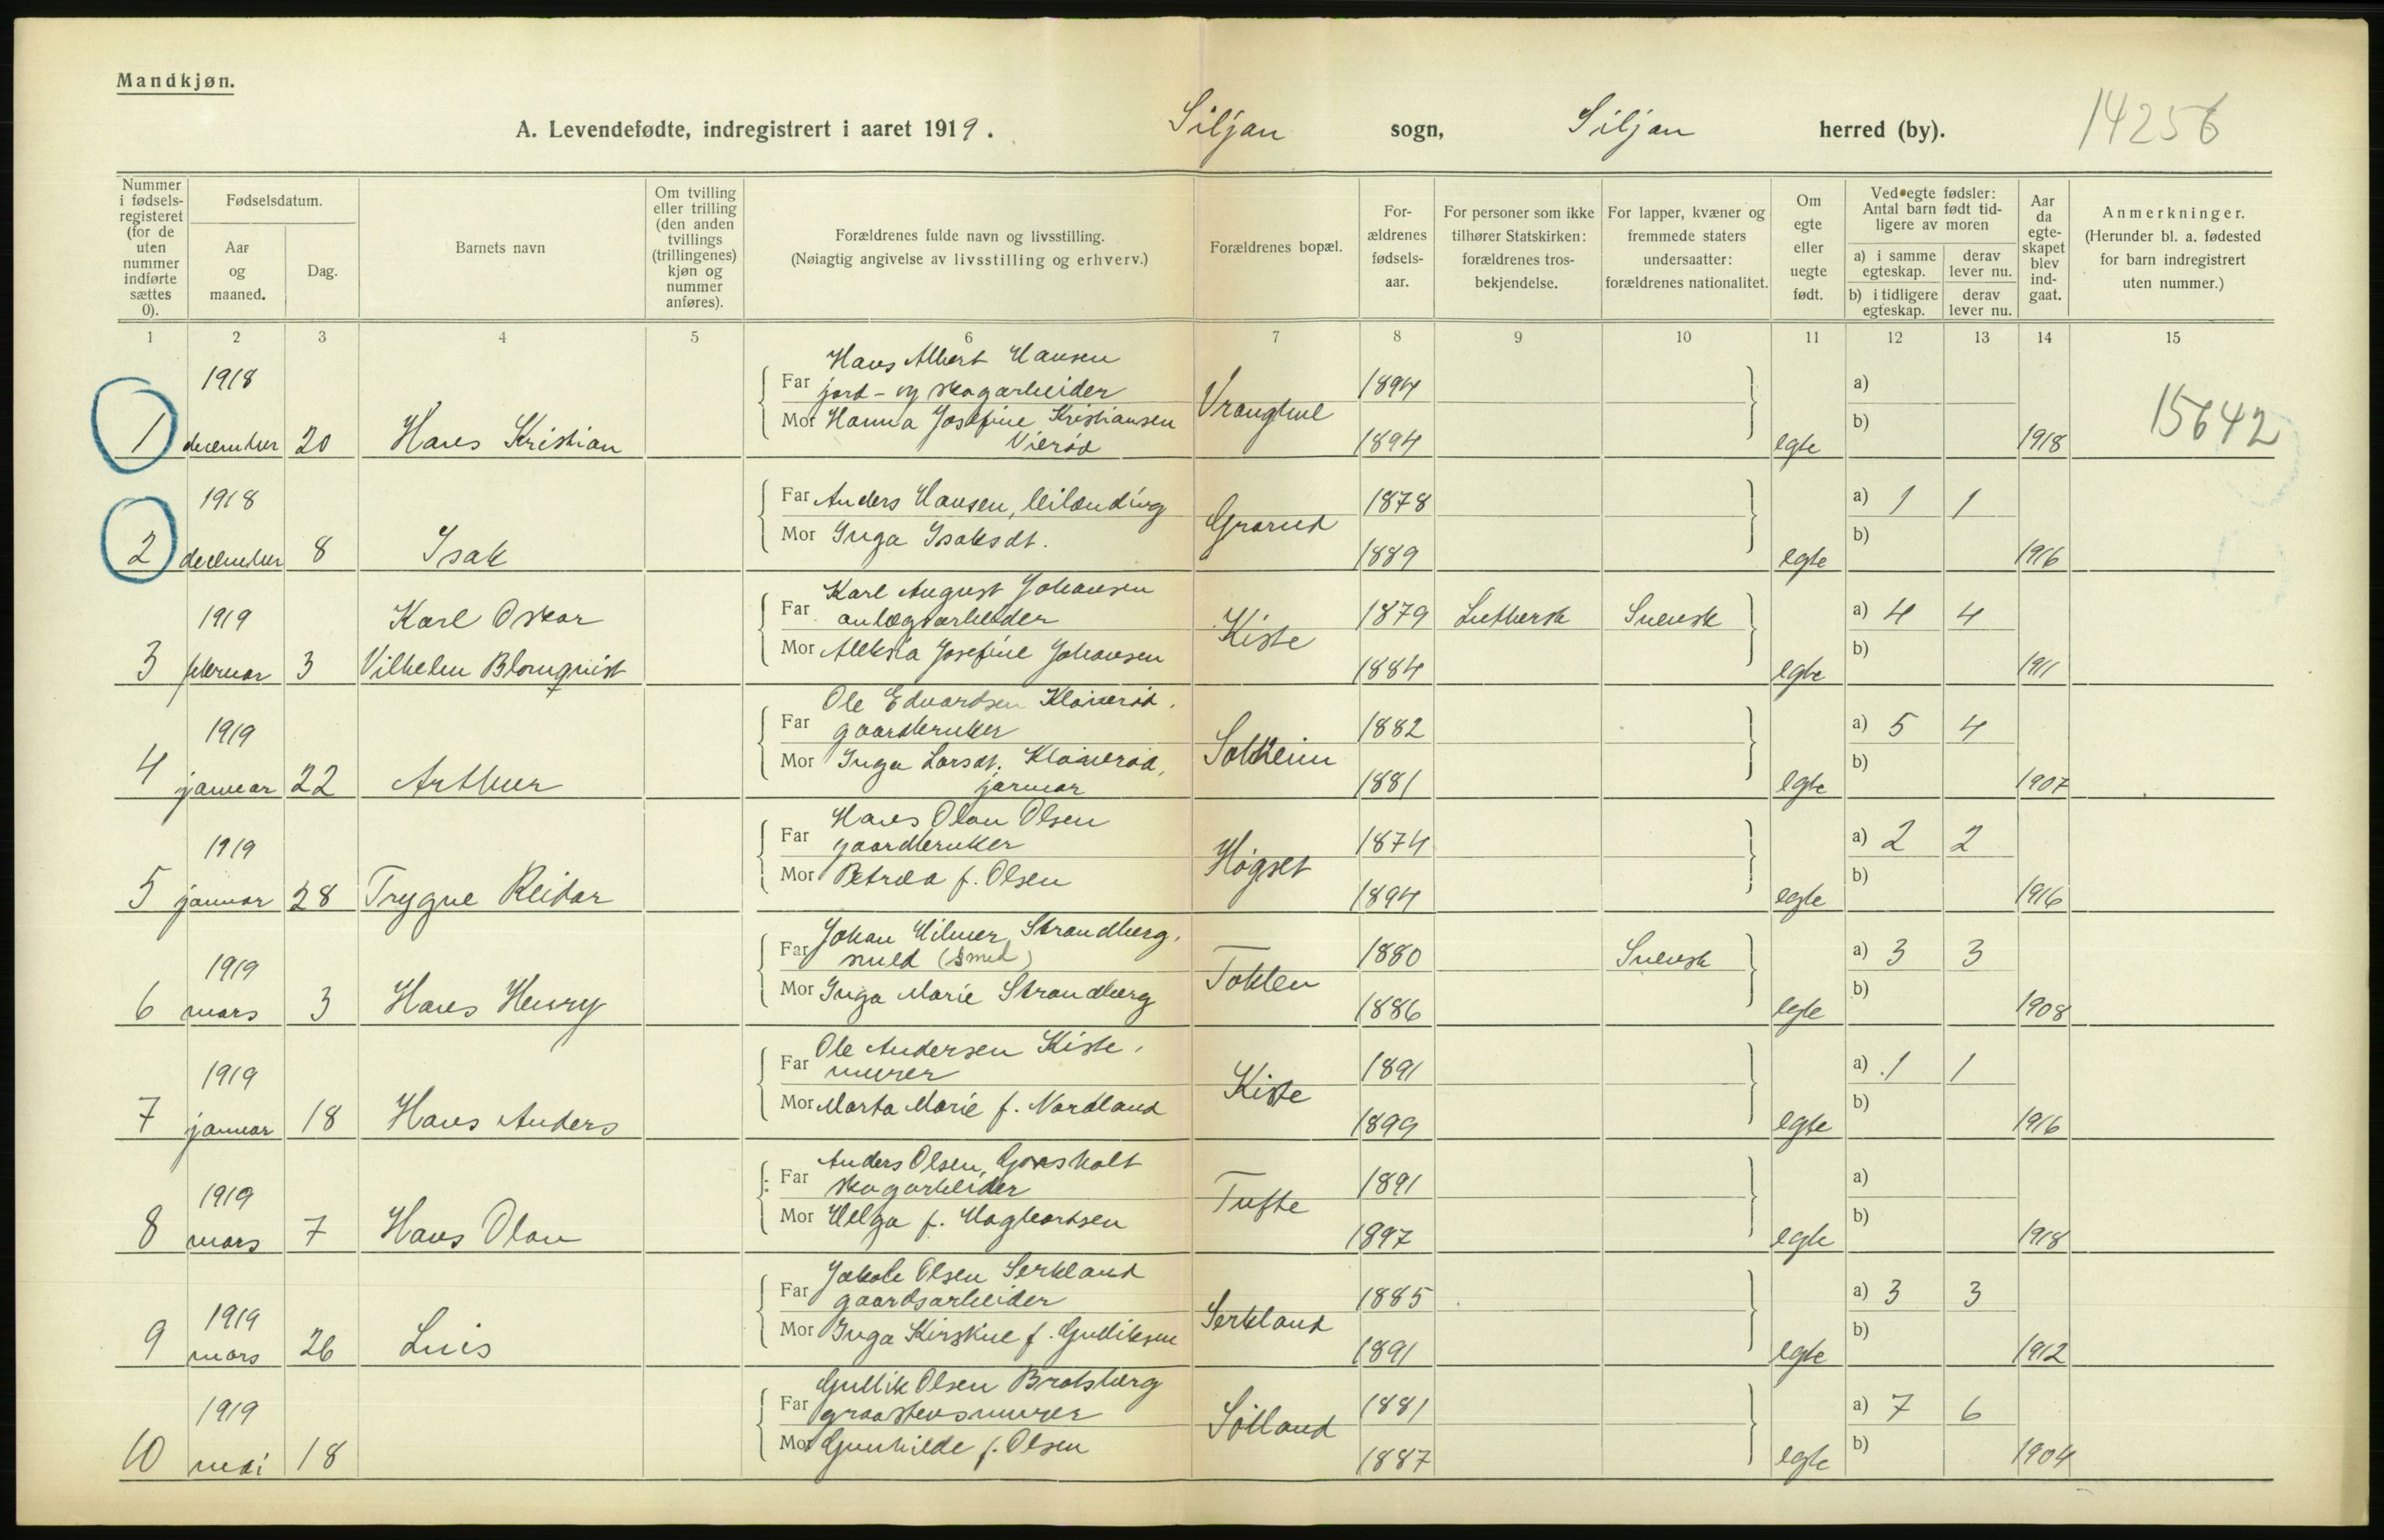 Mandkjøn.
A. Levendefødte, indregistrert i aaret 1919. Siljan sogn, Siljan herred (by). 14256
Nummer i fødsels-registeret (for de uten nummer indførte sættes 0).
Fødselsdatum.
Aar og maaned.
Dag.
Barnets navn
Om tvilling eller trilling (den anden tvillings (trillingenes) kjøn og nummer anføres).
Forældrenes fulde navn og livsstilling.
(Nøiagtig angivelse av livsstilling og erhverv.)
Forældrenes bopæl.
For-ældrenes fødsels-aar.
For personer som ikke tilhører Statskirken: forældrenes tros-bekjendelse.
For lapper, kvæner og fremmede staters undersaatter: forældrenes nationalitet.
Om egte eller uegte født.
Ved egte fødsler: Antal barn født tid-ligere av moren
a) i samme egteskap.
derav lever nu.
b) i tidligere egteskap.
derav lever nu.
Aar da egte-skapet blev ind-gaat.
Anmerkninger.
(Herunder bl. a. fødested for barn indregistrert uten nummer.)
1 2 3 4 5 6 7 8 9 10 11 12 13 14 15
1918
Hans Albert Hansen
Far jord- og skogarbeider 1894 a)
Mor Hanna Josefine Kristiansen Vranghul b) 15642
1 december 20 Hans Kristian Vierød 1894 egte 1918
1918 Far Anders Hansen, leilænding 1878 a) 1 1
Mor Inga Isaksdt. Grorud b)
2 december 8 Isak 1889 egte 1916
Karl August Johansen
1919 Karl Oskar Far anlægsarbeider 1879 Luthersk Svensk a) 4 4
Mor Aleksia Josefine Johansen Kiste b)
3 februar 3 Vilhelm Blomquist 1884 egte 1911
Ole Edvardsen
1919 Far gaardbruker 1882 a) 5 4
Mor Inga Larsdt. Solheim b)
4 januar 22 Arthur januar 1881 egte 1907
Hans Olau Olsen
1919 Far gaardbruker 1874 a) 2 2
Mor Petrea f. Olsen Høgset b)
5 januar 28 Trygve Reidar 1894 egte 1916
Johan Hilmer Strandberg.
1919 Far smed (smed) 1880 Svensk a) 3 3
Mor Inga Marie Strandberg Toklen b)
6 mars 3 Hans Henry 1886 egte 1908
Ole Andersen Kiste.
1919 Far murer 1891 a) 1 1
Mor Marta Marie f. Nordland Kiste b)
7 januar 18 Hans Anders 1899 egte 1916
Anders Olsen, Gorsholt
1919 Far skogarbeider 1891 a)
Mor Helga f. Hagbartsen Tufte b)
8 mars 7 Hans Olau 1897 egte 1918
Jakob Olsen Serkland
1919 Far gaardsarbeider 1885 a) 3 3
Mor Inga Kirstine f. Gulliksen Serkland b)
9 mars 26 Luis 1891 egte 1912
Gullik Olsen Bratsberg
1919 Far graastensmurer 1881 a) 7 6
Mor Gunhilde f. Olsen Sølland b)
10 mai 18 1887 egte 1904